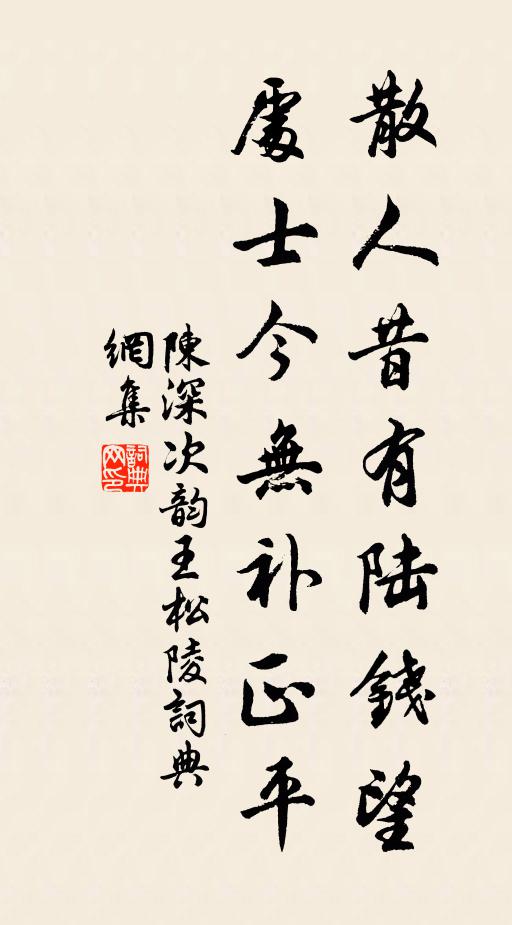 散人昔有陆錢望
處士今無补正平
陳深次韵王松陵詞典
網集
詞典
网印